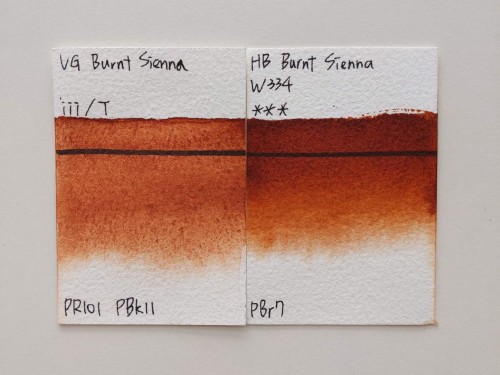 VG Burnt Sienna
iii/T
PR101 PBk11
HB Burnt Sienna
W334
***
PBr7